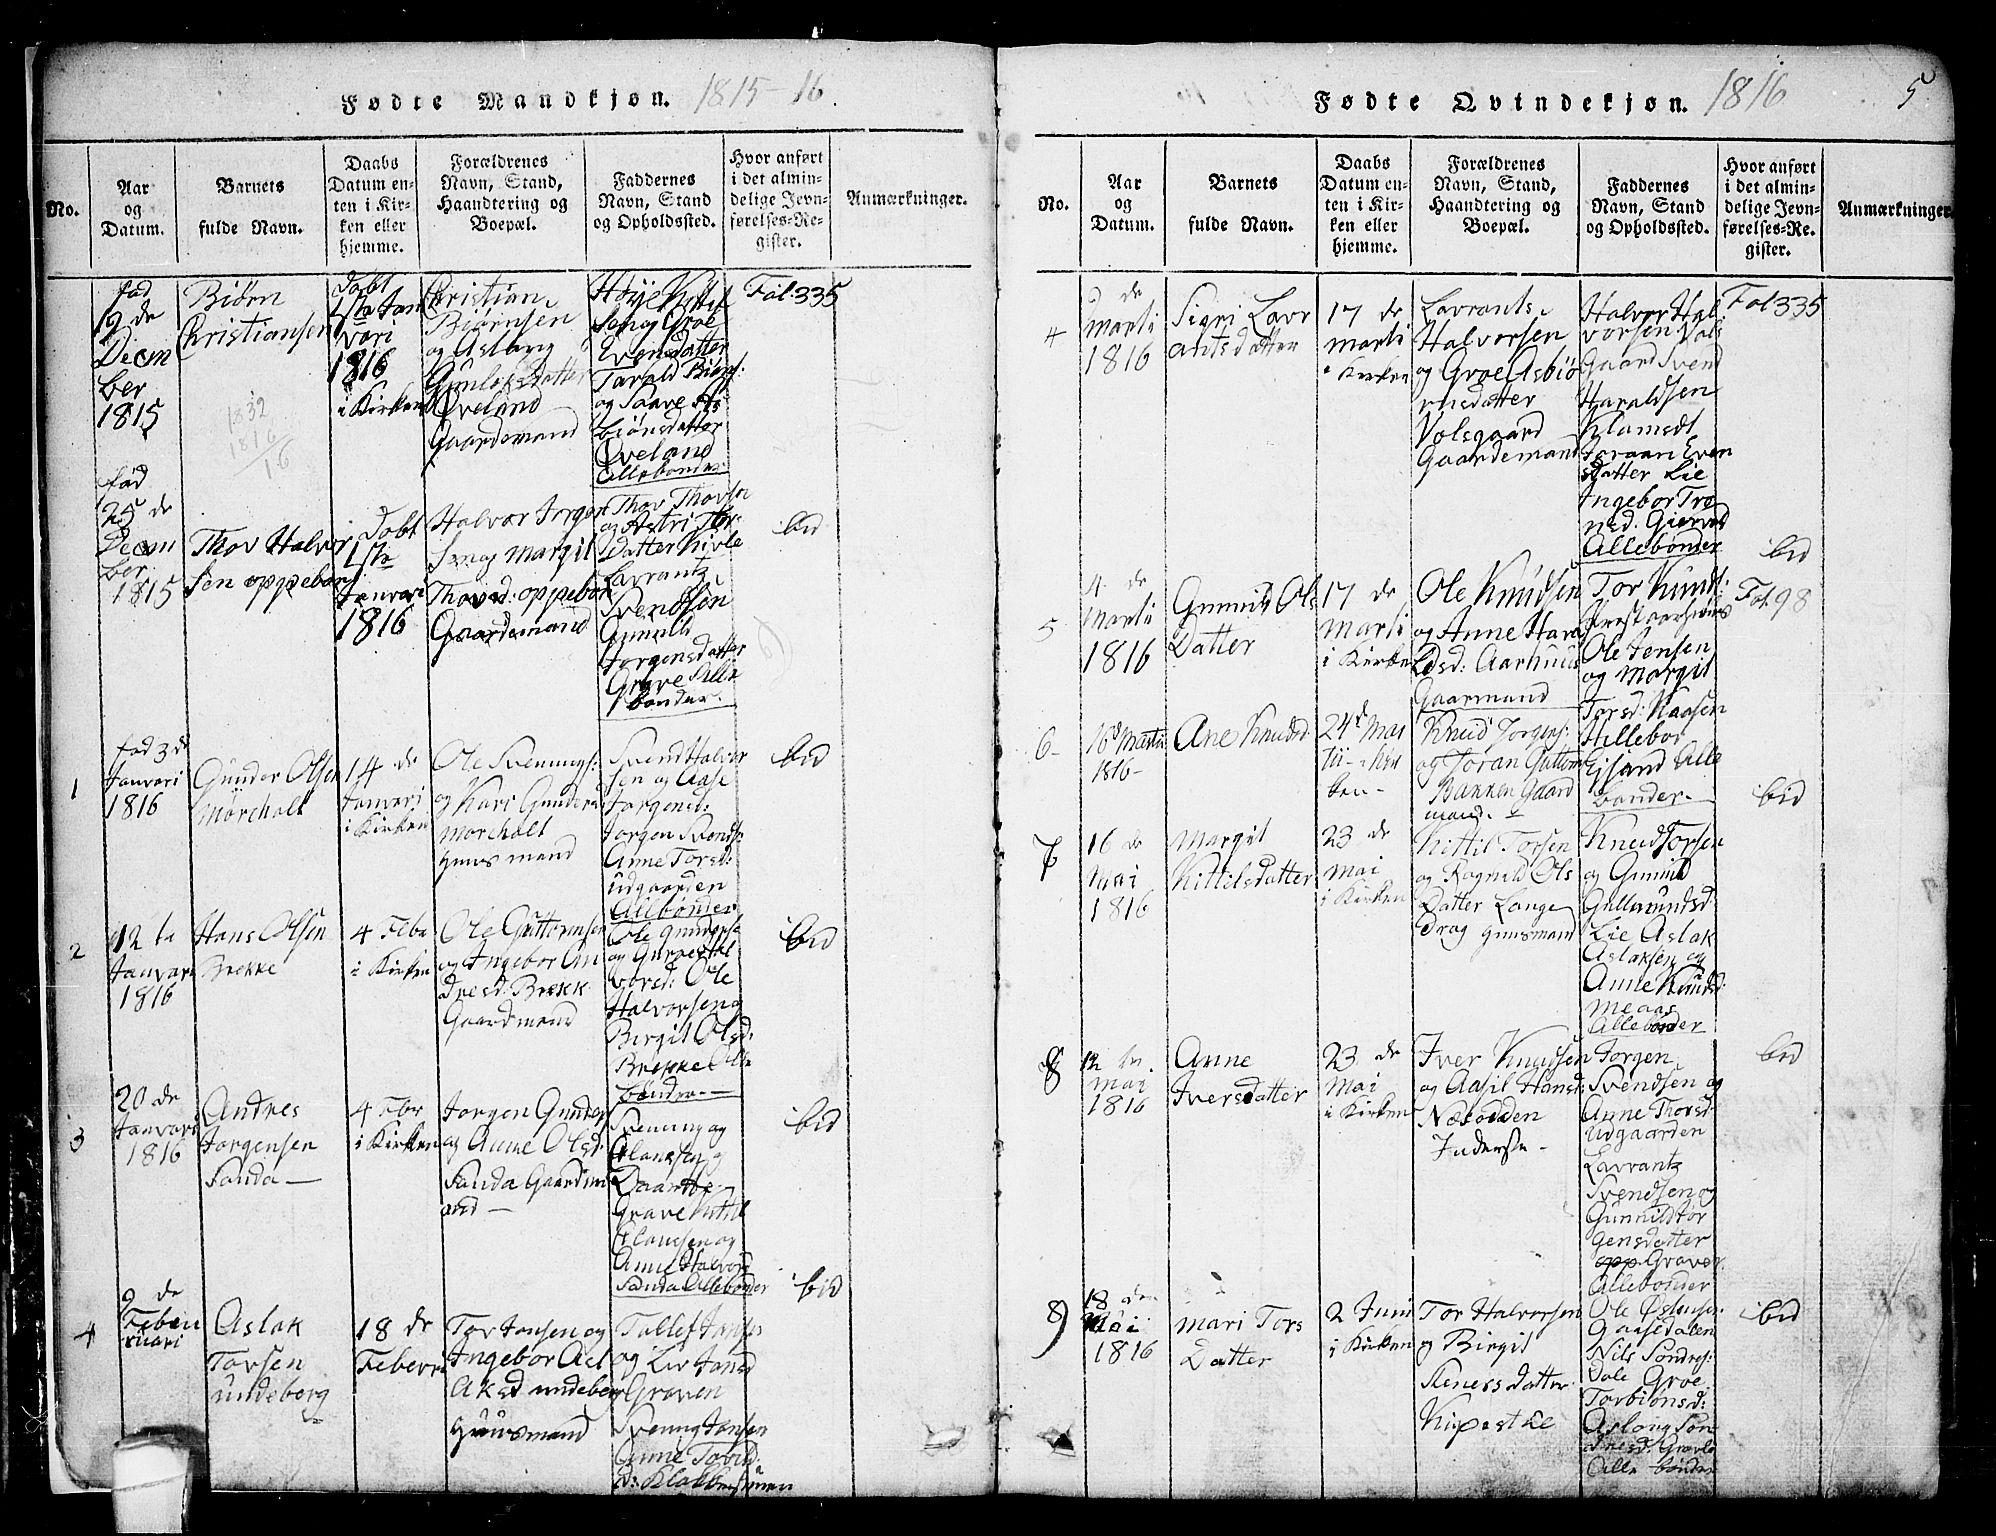 Fødte Mandkjøn. 1815-16
No.
Aar
og
Datum.
Barnets
fulde Navn.
Daabs
Datum en-
ten i Kir-
ken eller
hjemme.
Forældrenes
Navn, Stand,
Haandtering og
Boepæl.
Faddernes
Navn, Stand
og Opholdssted.
Hvor anført
i det almin-
delige Jevn-
førelses-Re-
gister.
Anmærkninger.
fød
19 de
Decm
ber
1815
Biørn
Christiansen
1832
1816
16
Døbt
1ste Jan
vari
1816
i Kirken
Christian
Biørnsen
og Aslaug
Gunleksdatter
Øveland
Gaardemand
Høye Kittil
Sen og Groe
Evensdatter
Tarald Biøns:
og Saave As
biønsdatter
Øveland
Allebønder
Fol:335
fød
25 de
Decm
ber
1815
Thov Halvor
Sen oppebøen
Døbt
1ste
Januari
1816
Halvor Jørgen
Sen og Margit
Thovsd: oppebøen
Gaardemand
Thov Thovsen
og Astri Thor
datter Kivle
Lavrantz
Svendsen
Gunnild
Jørgensdatter
Grave Alle
bønder.
ibid
1
fød 3 de
Januari
1816
Gunder Olsen
Mørcholt
14 de
Januari
i Kirken
Ole Svennings:
og Kari Gunders
morcholt
Huusmand
Svend Halvor
sen og Aase
Jørgensd:
Jørgen Svends:
Anne Torsd:
udgaarden
Allebønder
ibid
2
12 te
Januari
1816
Hans Olsen
Brekke
4 Febr
i Kirken
Ole Guttormsen
og Ingebor An
dresd: Brekk
Gaardmand
Ole Gunders
og Gurve Hal
vorsd: Ole
Halvorsen og
Birgit Olsd:
Brekke Alle
bønder
ibid
3
20 de
Januari
1816
Andres
Jørgensen
Sanda
4 Febr
i Kirken
Jørgen Gunders
og Anne Olsd:
Sanda Gaardm
and
Svening og
Grave Kittil
Clausen og
Anne Halvors
Sanda Allebønder
ibid
4
9 de
Febru
ruari
Aslak
Torsen
undeberg
18 de
Feberri
Tor Jansen og
Ingebor Asl
Aksd undeberg
Huusmand
Tallef Jansen
og Liv Jansd
Graven
Svenning Jansen
Anne Tovild
Fødte Qvindekjøn. 1816
5
No.
Aar
og
Datum.
Barnets
fulde Navn.
Daabs
Datum en-
ten i Kir-
ken eller
hjemme.
Forældrenes
Navn, Stand,
Haandtering og
Boepæl.
Faddernes
Navn, Stand
og Opholdssted.
Hvor anført
i det almin-
delige Jevn-
førelses-Re-
gister.
Anmærkninger.
4
de
Marti
1816
Sigri Lavr
antsdatter
17 de
Marti
i Kirken
Lavrants
Halvorsen
og Groe Asbiø
rnsdatter
Volsgaard
Gaardemand
Halvor Hal
vorsen Vols
Gaard Svend
Haraldsen
Klomset
Joraan Even
sdatter Lie
Ingebor Tro
nsd: Gierved
Allebønder
Fol335
ibid
5
4 de
Marti
1816
Gunnild Ols
Datter
17 de
Marti
i Kirken
Ole Knudsen
og Anne Hara
ldsd: Aarhuus
Gaarmand
Tor Knuds:
Prestaarhuus
Ole Jensen
og Margit
Torsd: Kaasen
Fol:98
6
16 Martii
1816
Ane Knudsd
24 Mar
tii i Kir
ken
Knud Jørgens:
og Joran Guttorm
Bakken Gaard
mand.
Hellebor
Eisand Alle
bønder
ibid
7
16 de
Mai
1816
Margit
Kittilsdatter
23 de
Mai
i Kirken
Kittil Torsen
og Ragnild Ols
Datter Lange
Drag Huusmand
Knud Torsen
og Gunnild
Gullmundsd
Lie Aslak
Aslaksen og
Anne Knudsd:
Meaas
Allebønder
8
12 te
Mai
1816
Anne
Iversdatter
23 de
Mai
i Kirken
Iver Knudsen
og Aasil Hansd:
Næsodden
Inderste
Jørgen
Svendsen og
Anne Thorsd:
Udgaarden
Lavrantz
Svendsen og
Gunnild Jør
gensdatter
Graver
Allebønder
ibid
9)
18 de
Mai
1816
Mari Tors
Datter
2 Juni
i Kirken
Tor Halvorsen
og Birgit
Steners datter
Ole Østensen
Gaasedalen
Nils Søndres:
Dale Groe
Torbiønsd:
Aslaug Søn
dresd: Gravle
Alle bønder
ibid